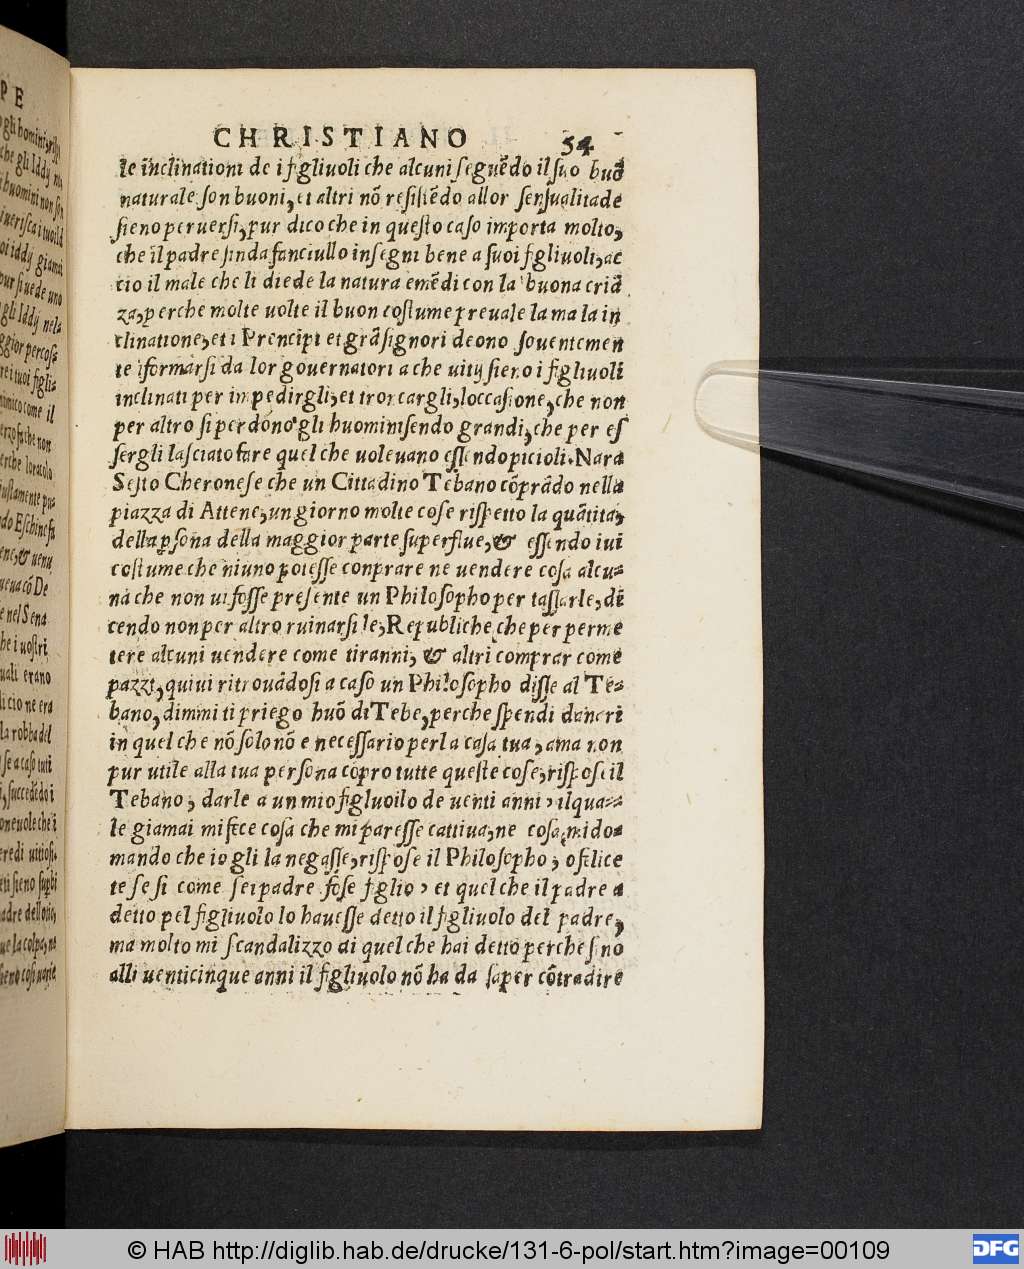 CHRISTIANO 54
le inclinationi de i figliuoli che alcuni seguẽdo il suo buõ
naturale son buoni, et altri nõ resistẽdo allor sensualitade
sieno peruersi, pur dico che in questo caso importa molto,
che il padre sin da fanciullo insegni bene a suoi figliuoli, ac
cio il male che li diede la natura emẽdi con la buona criã
za, perche molte uolte il buon costume preuale la mala in
clinatione, et i Prencipi et grã signori deono souentemen
te iformarsi da lor gouernatori a che uitij sieno i figliuoli
inclinati per impedirgli, et troncargli, loccasione, che non
per altro si perdono gli huomini sendo grandi, che per es
sergli lasciato fare quel che uoleuano essendo picioli. Nara
Sesto Cheronese che un Cittadino Tebano cõprãdo nella
piazza di Attene, un giorno molte cose rispetto la quãtita,
della p̱sona della maggior parte superflue, & essendo iui
costume che niuno potesse conprare ne uendere cosa alcu-
na che non ui fosse presente un Philosopho per tassarle, di
cendo non per altro ruinarsi le, Republiche, che per perme
tere alcuni uendere come tiranni, & altri comprar come
pazzi, quiui ritrouãdosi a caso un Philosopho disse al Te-
bano, dimmi ti priego huõ di Tebe, perche spendi danari
in quel che nõ solo nõ e necessario per la casa tua, ama non
pur utile alla tua persona copro tutte queste cose, rispose il
Tebano, darle a un mio figluoilo de uenti anni, il qua-
le giamai mi fece cosa che mi paresse cattiua, ne cosa mi do-
mando che io gli la negasse, rispose il Philosopho, o felice
te se si come sei padre fose figlio, et quel che il padre a
detto pel figliuolo lo hauesse detto il figliuolo del padre,
ma molto mi scandalizzo di quel che hai detto perche sino
alli uenticinque anni il figliuolo nõ ha da saper cõtradire
© HAB http://diglib.hab.de/drucke/131-6-pol/start.htm?image=00109
DFG